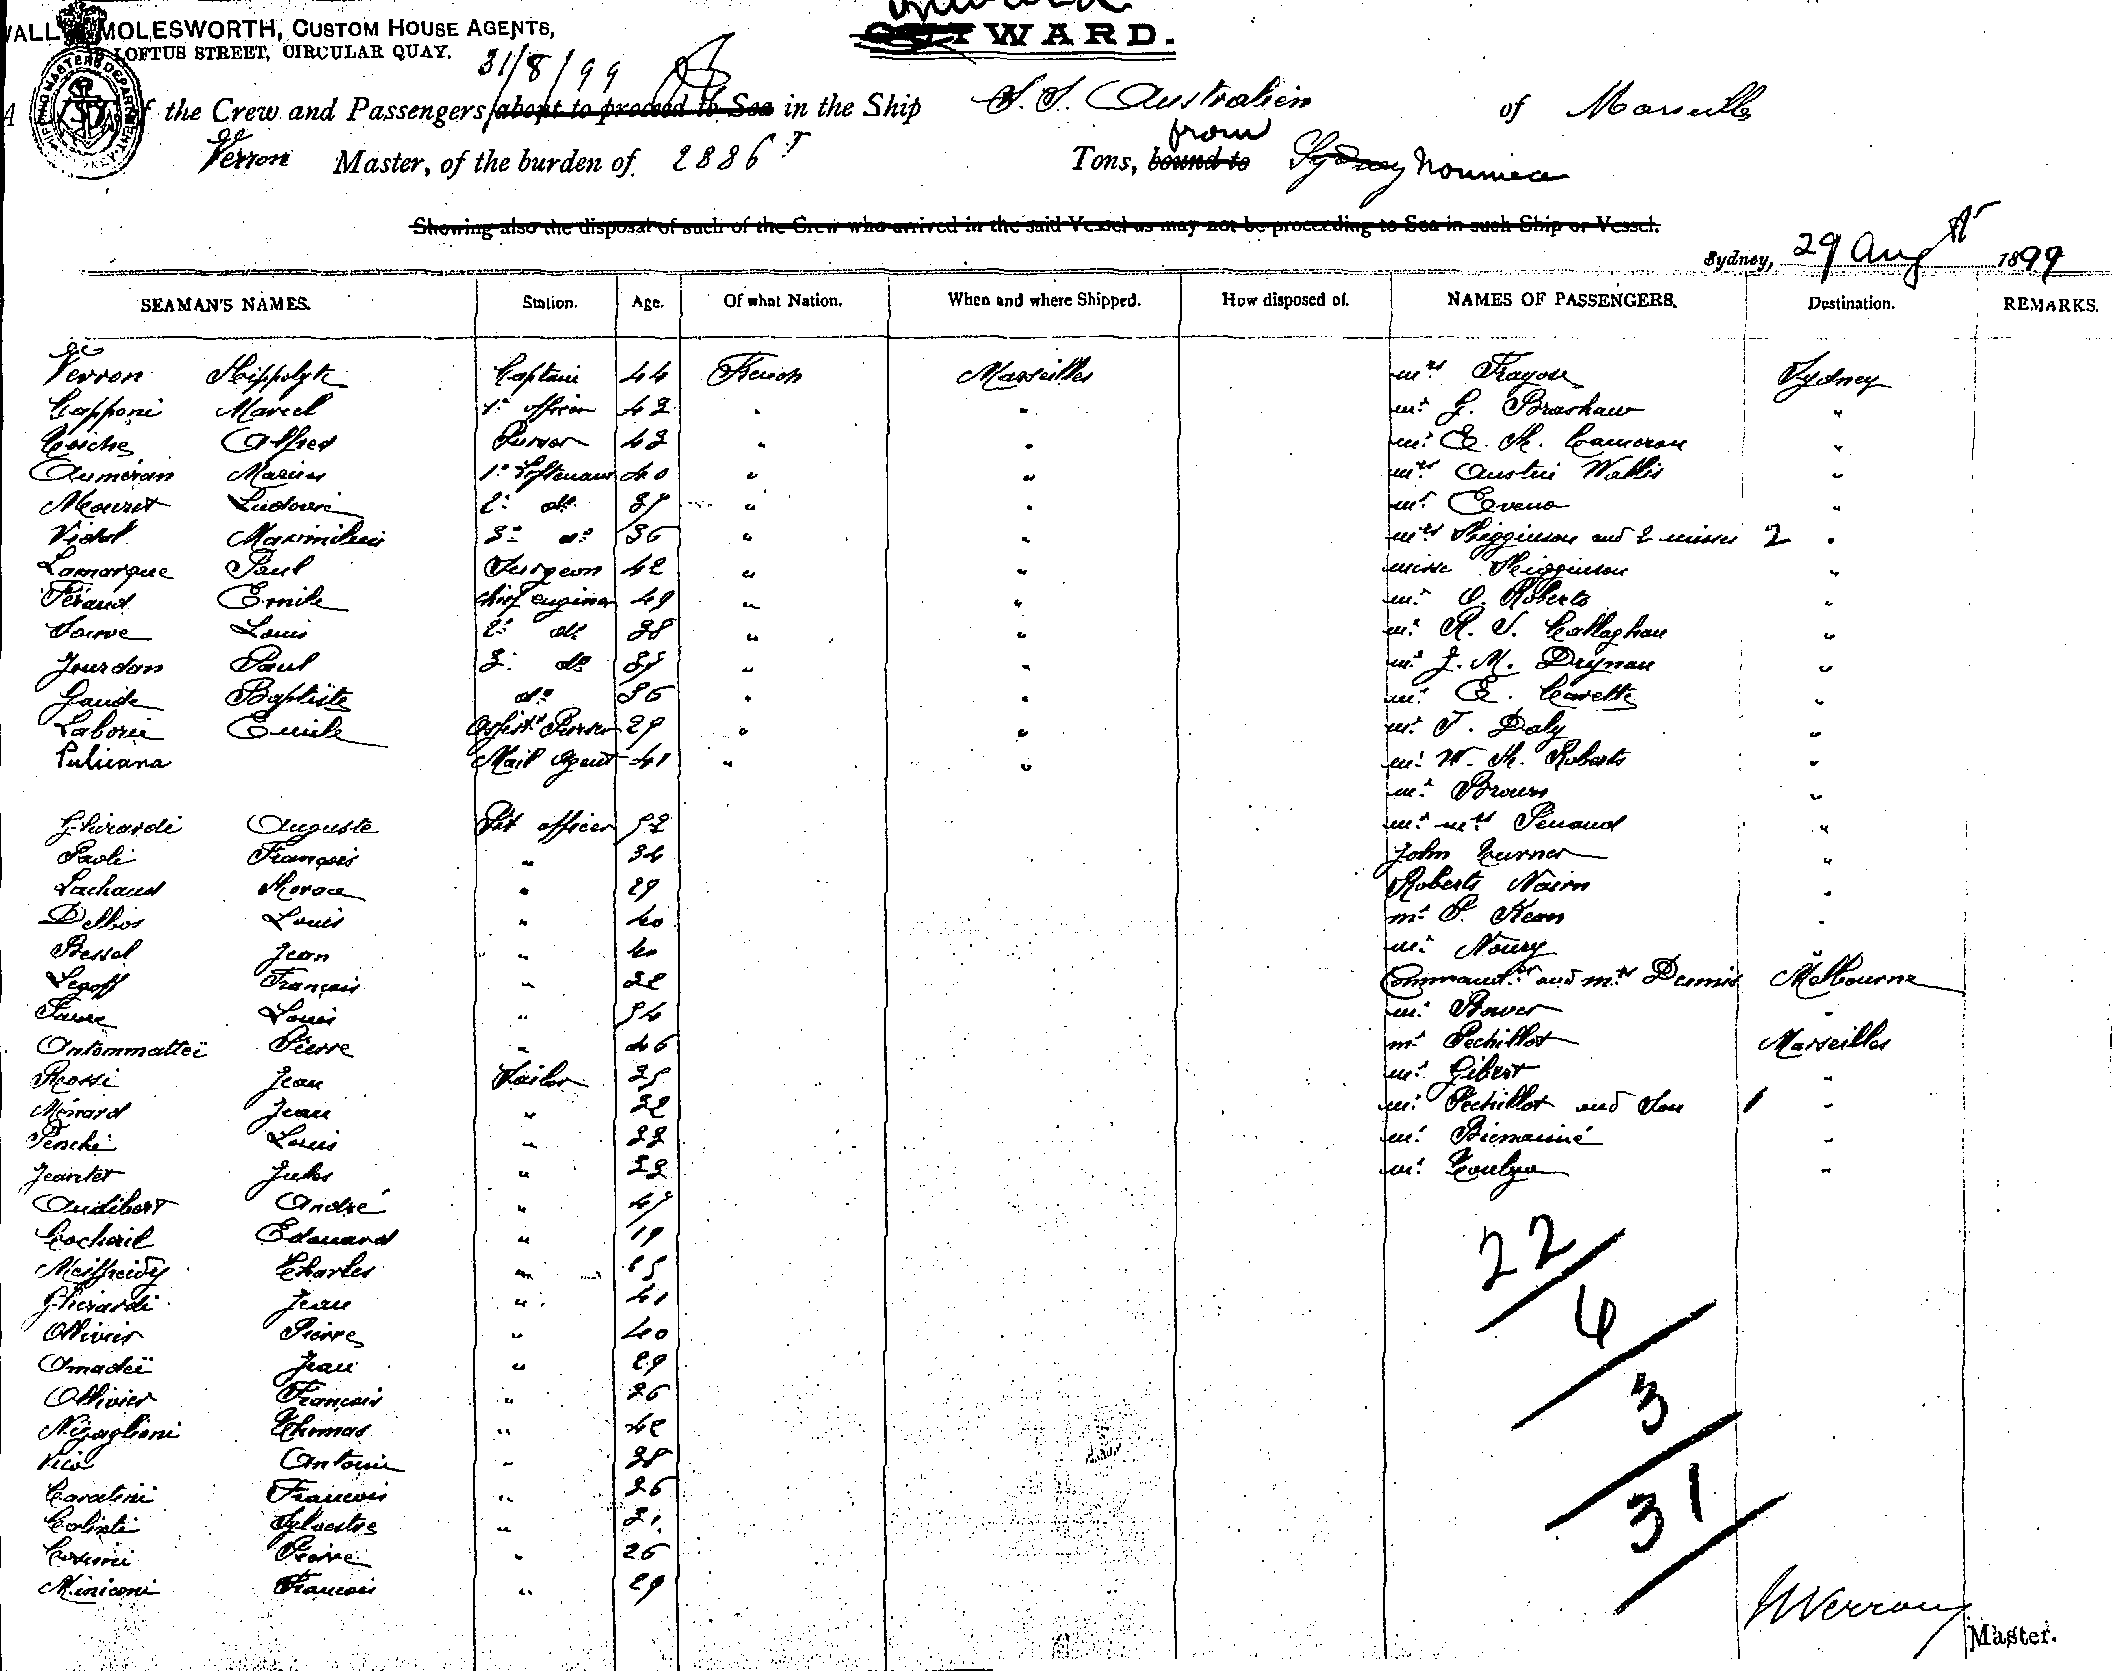 WALL & MOLESWORTH, CUSTOM HOUSE AGENTS,
LOFTUS STREET, CIRCULAR QUAY.
31/8/99
Inward
OUTWARD.
of the Crew and Passengers about to proceed to Sea in the Ship S.S. Australien of Marseille
Verron Master, of the burden of 2886 T Tons, bound to from Sydney Noumea
Showing also the disposal of such of the Crew who arrived in the said Vessel as may not be proceeding to Sea in such Ship or Vessel.
Sydney, 29 Augst 1899
SEAMAN'S NAMES. Station. Age. Of what Nation. When and where Shipped. How disposed of. NAMES OF PASSENGERS. Destination. REMARKS.
Verron Hippolyte Captain 44 French Marseilles mrs Sydney
Capponi Marcel 1r officer 43 " " mr G. Brashaw "
Coiche Alfred Purser 43 " " mr E. H. Cameron "
Aumeran Marius 40 " " mrs Austin Wallis "
Mouret Ludovic 2d do " " mr "
Vidal Maximilien 3d do 36 " " mrs Higginson and 2 misses 2 "
Lamarque Paul Surgeon 42 " " misse Higginson "
Féraud Emile chief engineer 49 " " mr O. Roberts "
Louis 2d do 38 " " mr R. S. Callaghan "
Jourdan Paul 3d do " " mr J. M. Drynan "
Gaude Baptiste do 36 " " mr E. Cavette "
Laborie Emile assist Purser 29 " " mr T. Daly "
Puliciana Mail Agent 41 " " mr W. H. Roberts "
mr Brown "
Ghirardi Auguste Pet officer 52 mr mrs Penaud "
Paoli François " 34 John Turner "
Lachaud Horace " 29 Roberts Nairn "
Delbos Louis " 40 mr P. Kean "
Bessel Jean " 40 mr Noury "
Legoff François " 32 Commandant and mrs Dennis Melbourne
Faure Louis " 54 mr Bower "
Antommattei Pierre " 46 mr Pechillot Marseilles
Rossi Jean Sailor 25 mr Gibert "
Ménard Jean " 32 mr Pechillot and Son 1 "
Louis " 33 mr Biemaimé "
Jeantet Jules " 33 mr "
Audibert André " 47
Edouard " 19
Charles "
Ghirardi Jean " 41
Ollivier Pierre " 40
Amadeï Jean " 29
Ollivier François " 26
Nigaglioni Thomas " 42
Vico Antoine " 38
Caratini François " 26
Sylvestre " 31
Cosimi Pierre " 26
Miniconi François " 29
22
6
3
31
H Verron
Master.